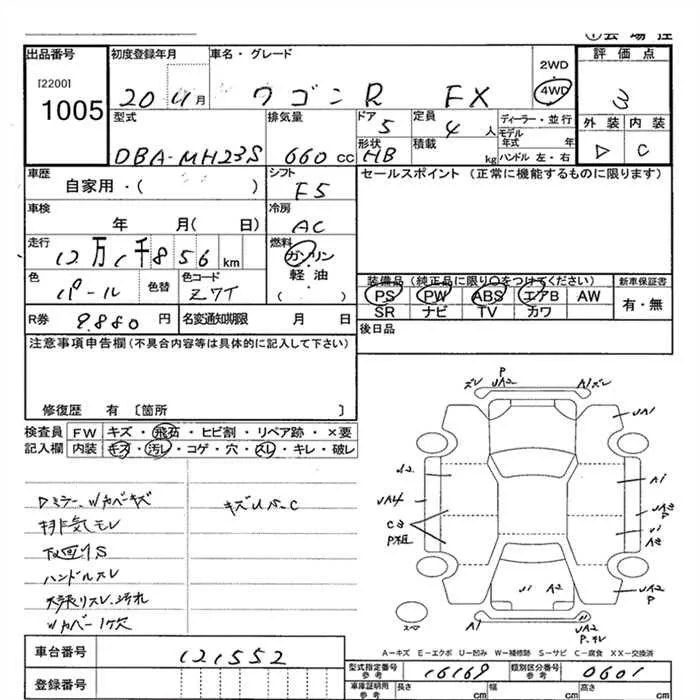 ①会場控
出品番号
[2200]
1005
初度登録年月
20 11月
車名・グレード
ワゴンR FX
2WD
4WD
評価点
3
型式
DBA-MH23S
排気量
660 cc
ドア
5
定員
4 人
形状
HB
積載
kg
ディーラー・並行
モデル
年式 年
ハンドル 左・右
外装 内装
D C
車歴
自家用・( )
シフト
F5
セールスポイント (正常に機能するものに限ります)
車検
年 月( 日)
冷房
AC
走行
12万1千856 km
燃料
ガソリン
軽油
( )
色
パール
色替
色コード
Z7T
装備品 (純正品に限り○をつけてください)
PS PW ABS エアB AW
SR ナビ TV カワ
新車保証書
有・無
R券 9.880 円
名変通知期限 月 日
後日品
注意事項申告欄 (不具合内容等は具体的に記入して下さい)
修復歴 有 [箇所 ]
検査員
記入欄
FW キズ・飛石・ヒビ割・リペア跡・×要
内装 キズ・汚レ・コゲ・穴・スレ・キレ・破レ
排気モレ
下回りS
ハンドルスレ
ズレ
P
UA2
A1ズレ
UA1
UA4
A1
U1
A2
UA2
P
U1
A2
A1
UA2
A=キズ E=エクボ U=凹み W=補修跡 S=サビ C=腐食 XX=交換済
車台番号
121552
登録番号
型式指定番号
参考
16169
類別区分番号
参考
0601
車庫証明用
参考
長さ cm
幅 cm
高さ cm